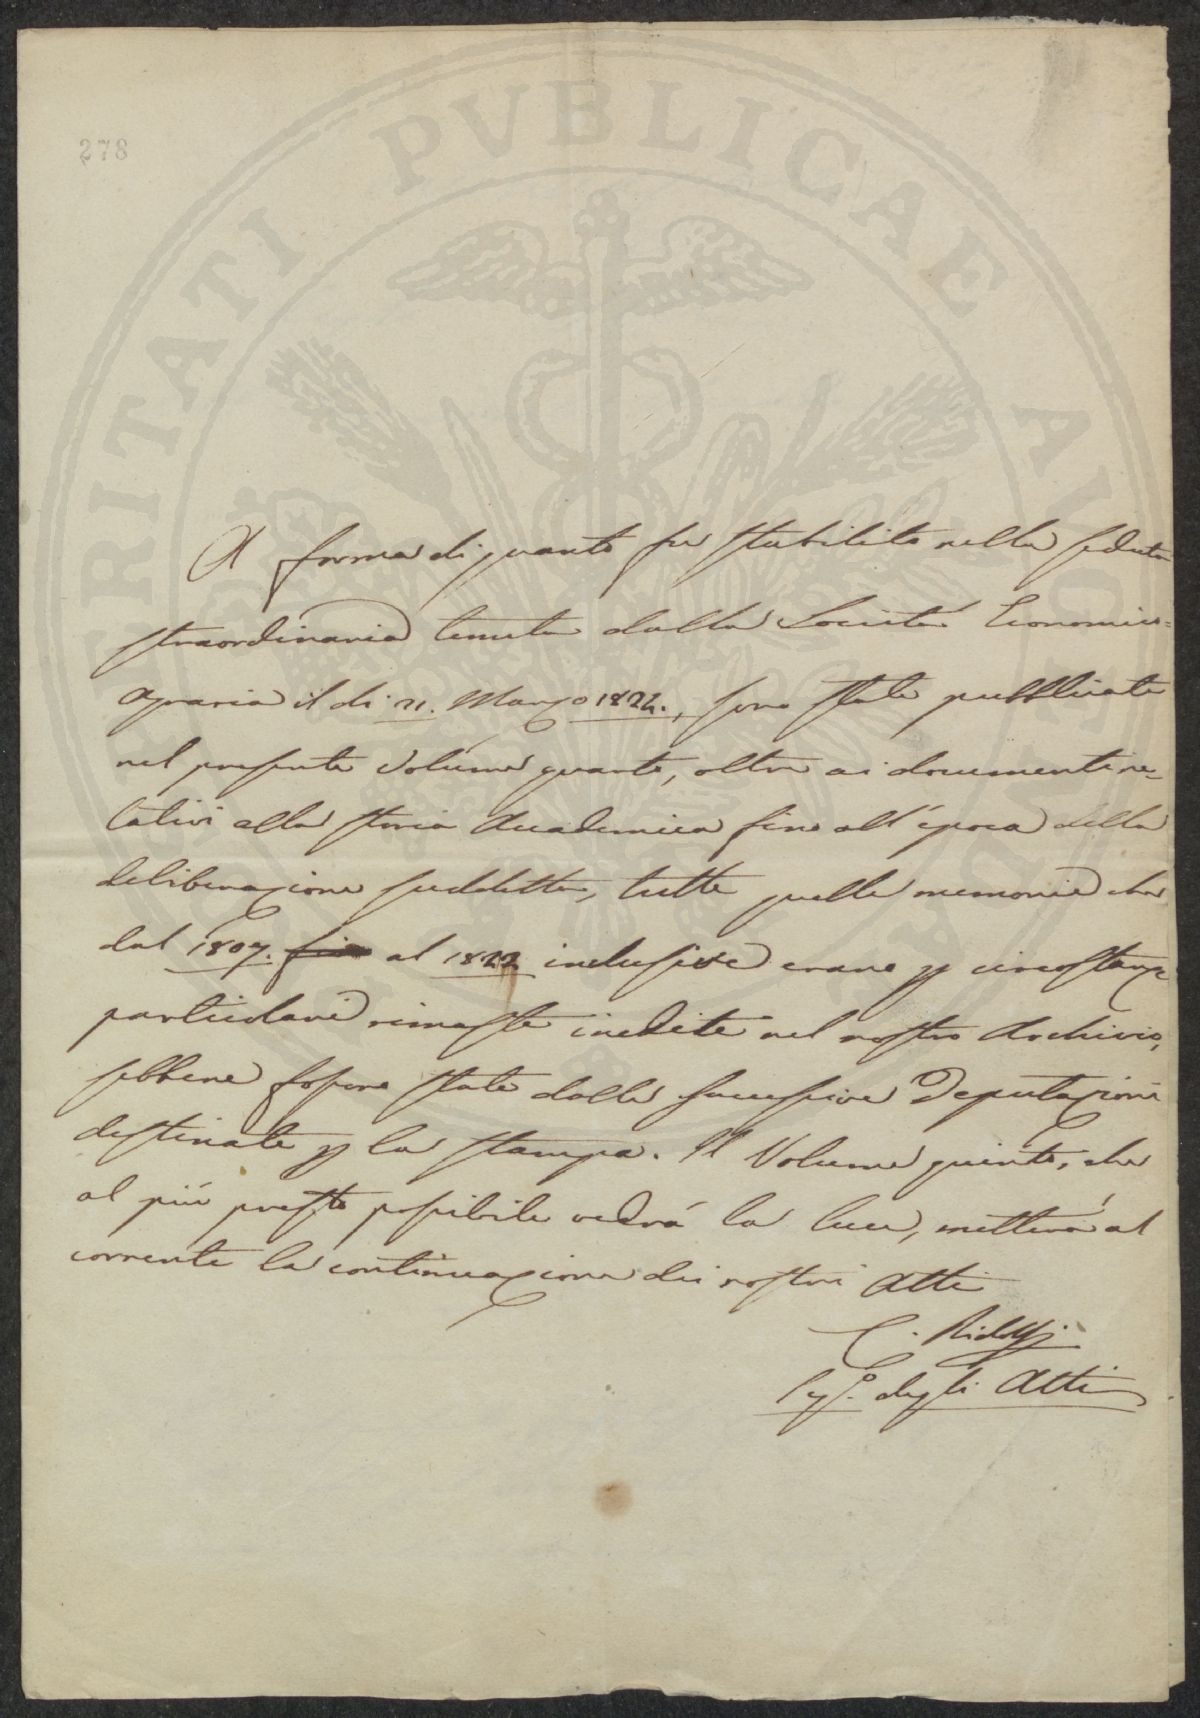 278
PROSPERITATI PVBLICAE AVGENDAE
A forma di quanto fu stabilito nella seduta
straordinaria tenuta dalla Società Economico-
agraria il dì 21. Marzo 1824., sono state pubblicate
nel presente Volume quarto, oltre ai documenti re-
lativi alla storia Accademica fino all'epoca della
deliberazione suddetta, tutte quelle memorie che
dal 1807. fin al 1822 inclusive erano p circostanze
particolari rimaste inedite nel nostro Archivio,
sebbene fossero state dalle successive Deputazioni
destinate p la stampa. Il Volume quinto, che
al più presto possibile vedrà la luce, metterà al
corrente la continuazione dei nostri Atti
C. Ridolfi
Segº. degli Atti